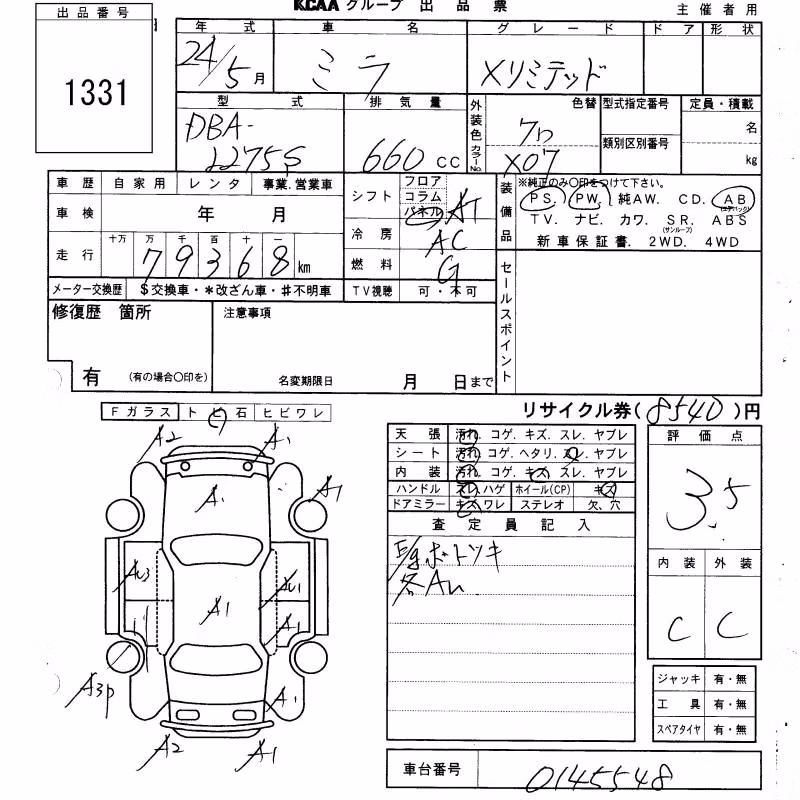 KCAA グループ 出品票
主催者用
出品番号
1331
年式 車名 グレード ドア 形状
24/5月 ミラ Xリミテッド
型式 排気量 外装色 カラーNo. 色替 型式指定番号 定員・積載
DBA-
L275S 660 CC 名
類別区別番号
X07 kg
車歴 自家用 レンタ 事業.営業車
シフト フロア
コラム
パネル AT
車検 年 月
冷房 AC
走行 十万 万 千 百 十 一
79368 km
燃料 G
メーター交換歴 $交換車・*改ざん車・#不明車 TV視聴 可・不可
装備品 ※純正のみ〇印をつけて下さい。
PS. PW. 純AW. CD. AB
(エアバック)
TV. ナビ. カワ. SR. ABS
(サンルーフ)
新車保証書. 2WD. 4WD
セールスポイント
修復歴 箇所 注意事項
有 (有の場合〇印を) 名変期限日 月 日まで
リサイクル券(8540)円
Fガラス トビ石 ヒビワレ
A2 A1
A1 A1
AU3 AU1
A1 A1
A3P A1
A2 A1
天張 汚れ. コゲ. キズ. スレ. ヤブレ
シート 汚れ. コゲ. ヘタリ. スレ. ヤブレ
内装 汚れ. コゲ. キズ. スレ. ヤブレ
ハンドル スレ.ハゲ ホイール(CP) キズ
ドアミラー キズ.ワレ ステレオ 欠、穴
査定員記入
各AU
評価点
3.5
内装 外装
C C
ジャッキ 有・無
工具 有・無
スペアタイヤ 有・無
車台番号 0145548